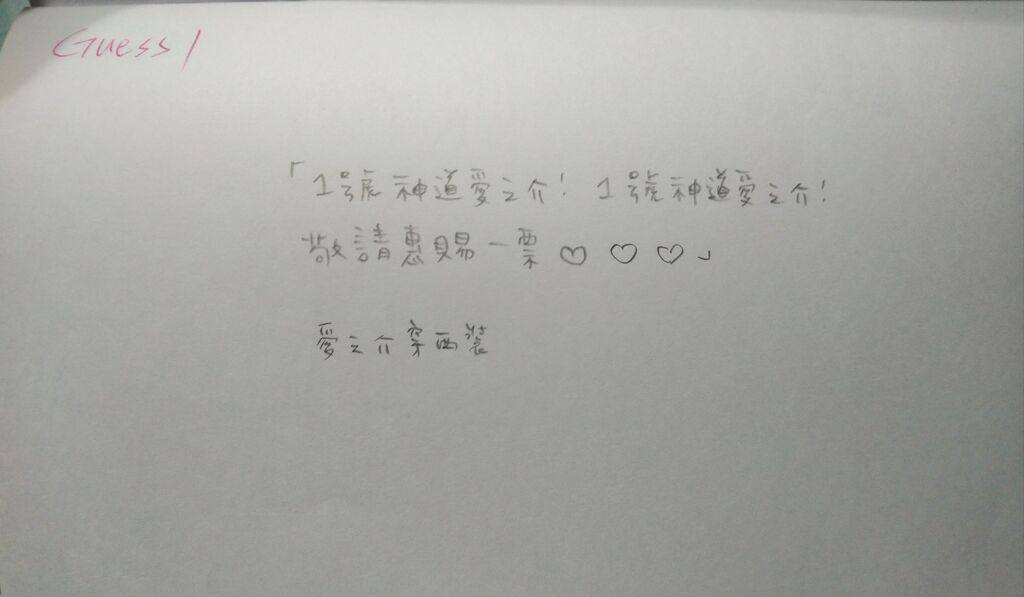 Guess 1
「1號神道愛之介！ 1號神道愛之介！
敬請惠賜一票♡ ♡ ♡」
愛之介穿西裝